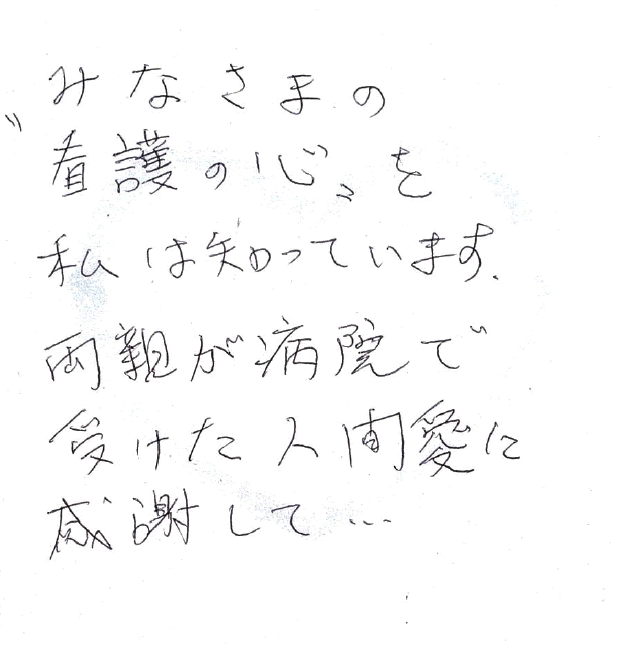 みなさまの
〝看護の心〟を
私は知っています.
両親が病院で
受けた人間愛に
感謝して…